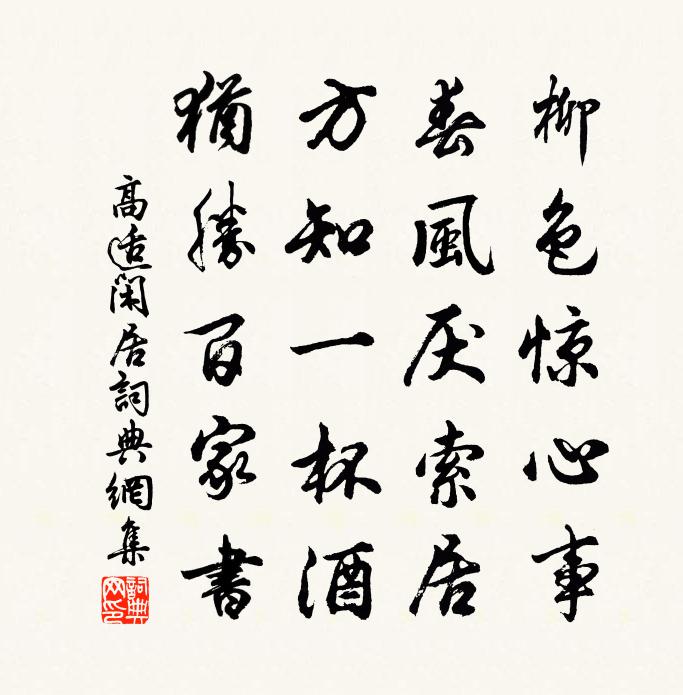 柳色惊心事
春風厌索居
方知一杯酒
猶勝百家書
高适閑居詞典網集
詞典网印